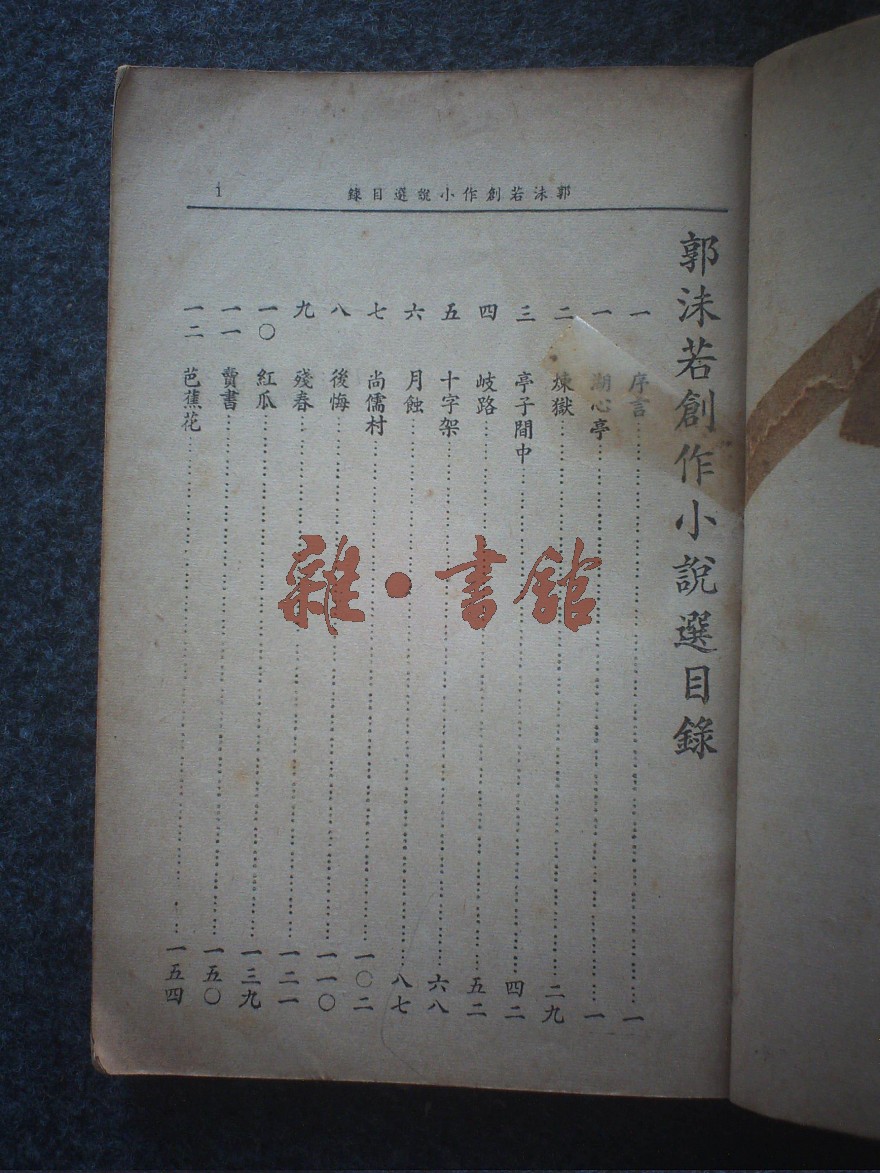 郭沫若創作小說選目錄
i
郭沫若創作小說選目錄
一 序言…………一
一 湖心亭…………一
二 煉獄…………二九
三 亭子間中…………四二
四 岐路…………五二
五 十字架…………六八
六 月蝕…………八七
七 尚儒村…………一〇二
八 後悔…………一一〇
九 殘春…………一二一
一〇 紅瓜…………一三九
一一 賣書…………一五〇
一二 芭蕉花…………一五四
雜·書館